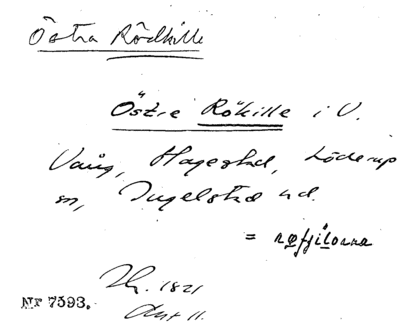 Östra Rödkille
Östre Rökille i V.
Vång, Hagestad, Löderup
sn, Ingelstad hd.
= røfjilorna
Lh. 1821
Akt 11.
Nr 7593.